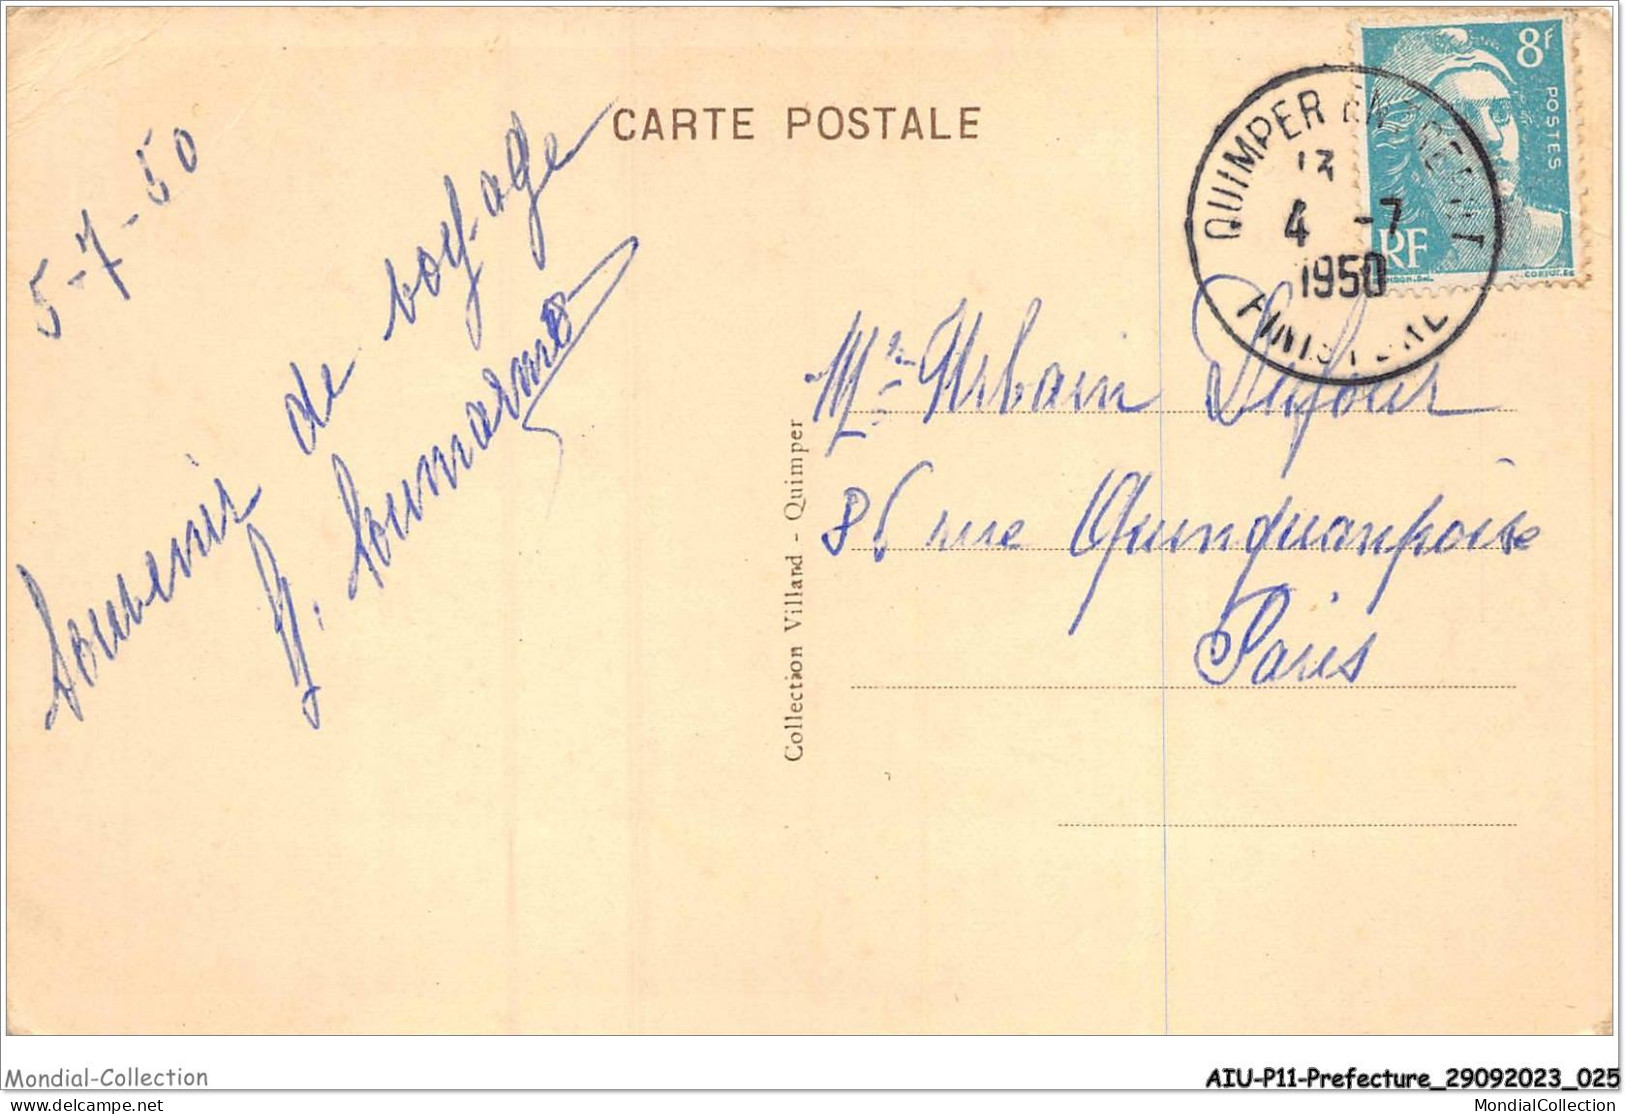 CARTE POSTALE
5-7-50
Souvenir de voyage
8F
POSTES
RF
QUIMPER
13
4 -7
1950
FINISTERE
Mr Urbain Dufour
86 rue Quinquanpoise
Paris
Collection Villard - Quimper
Mondial-Collection
AIU-P11-Prefecture_29092023_025
delcampe.net
MondialCollection